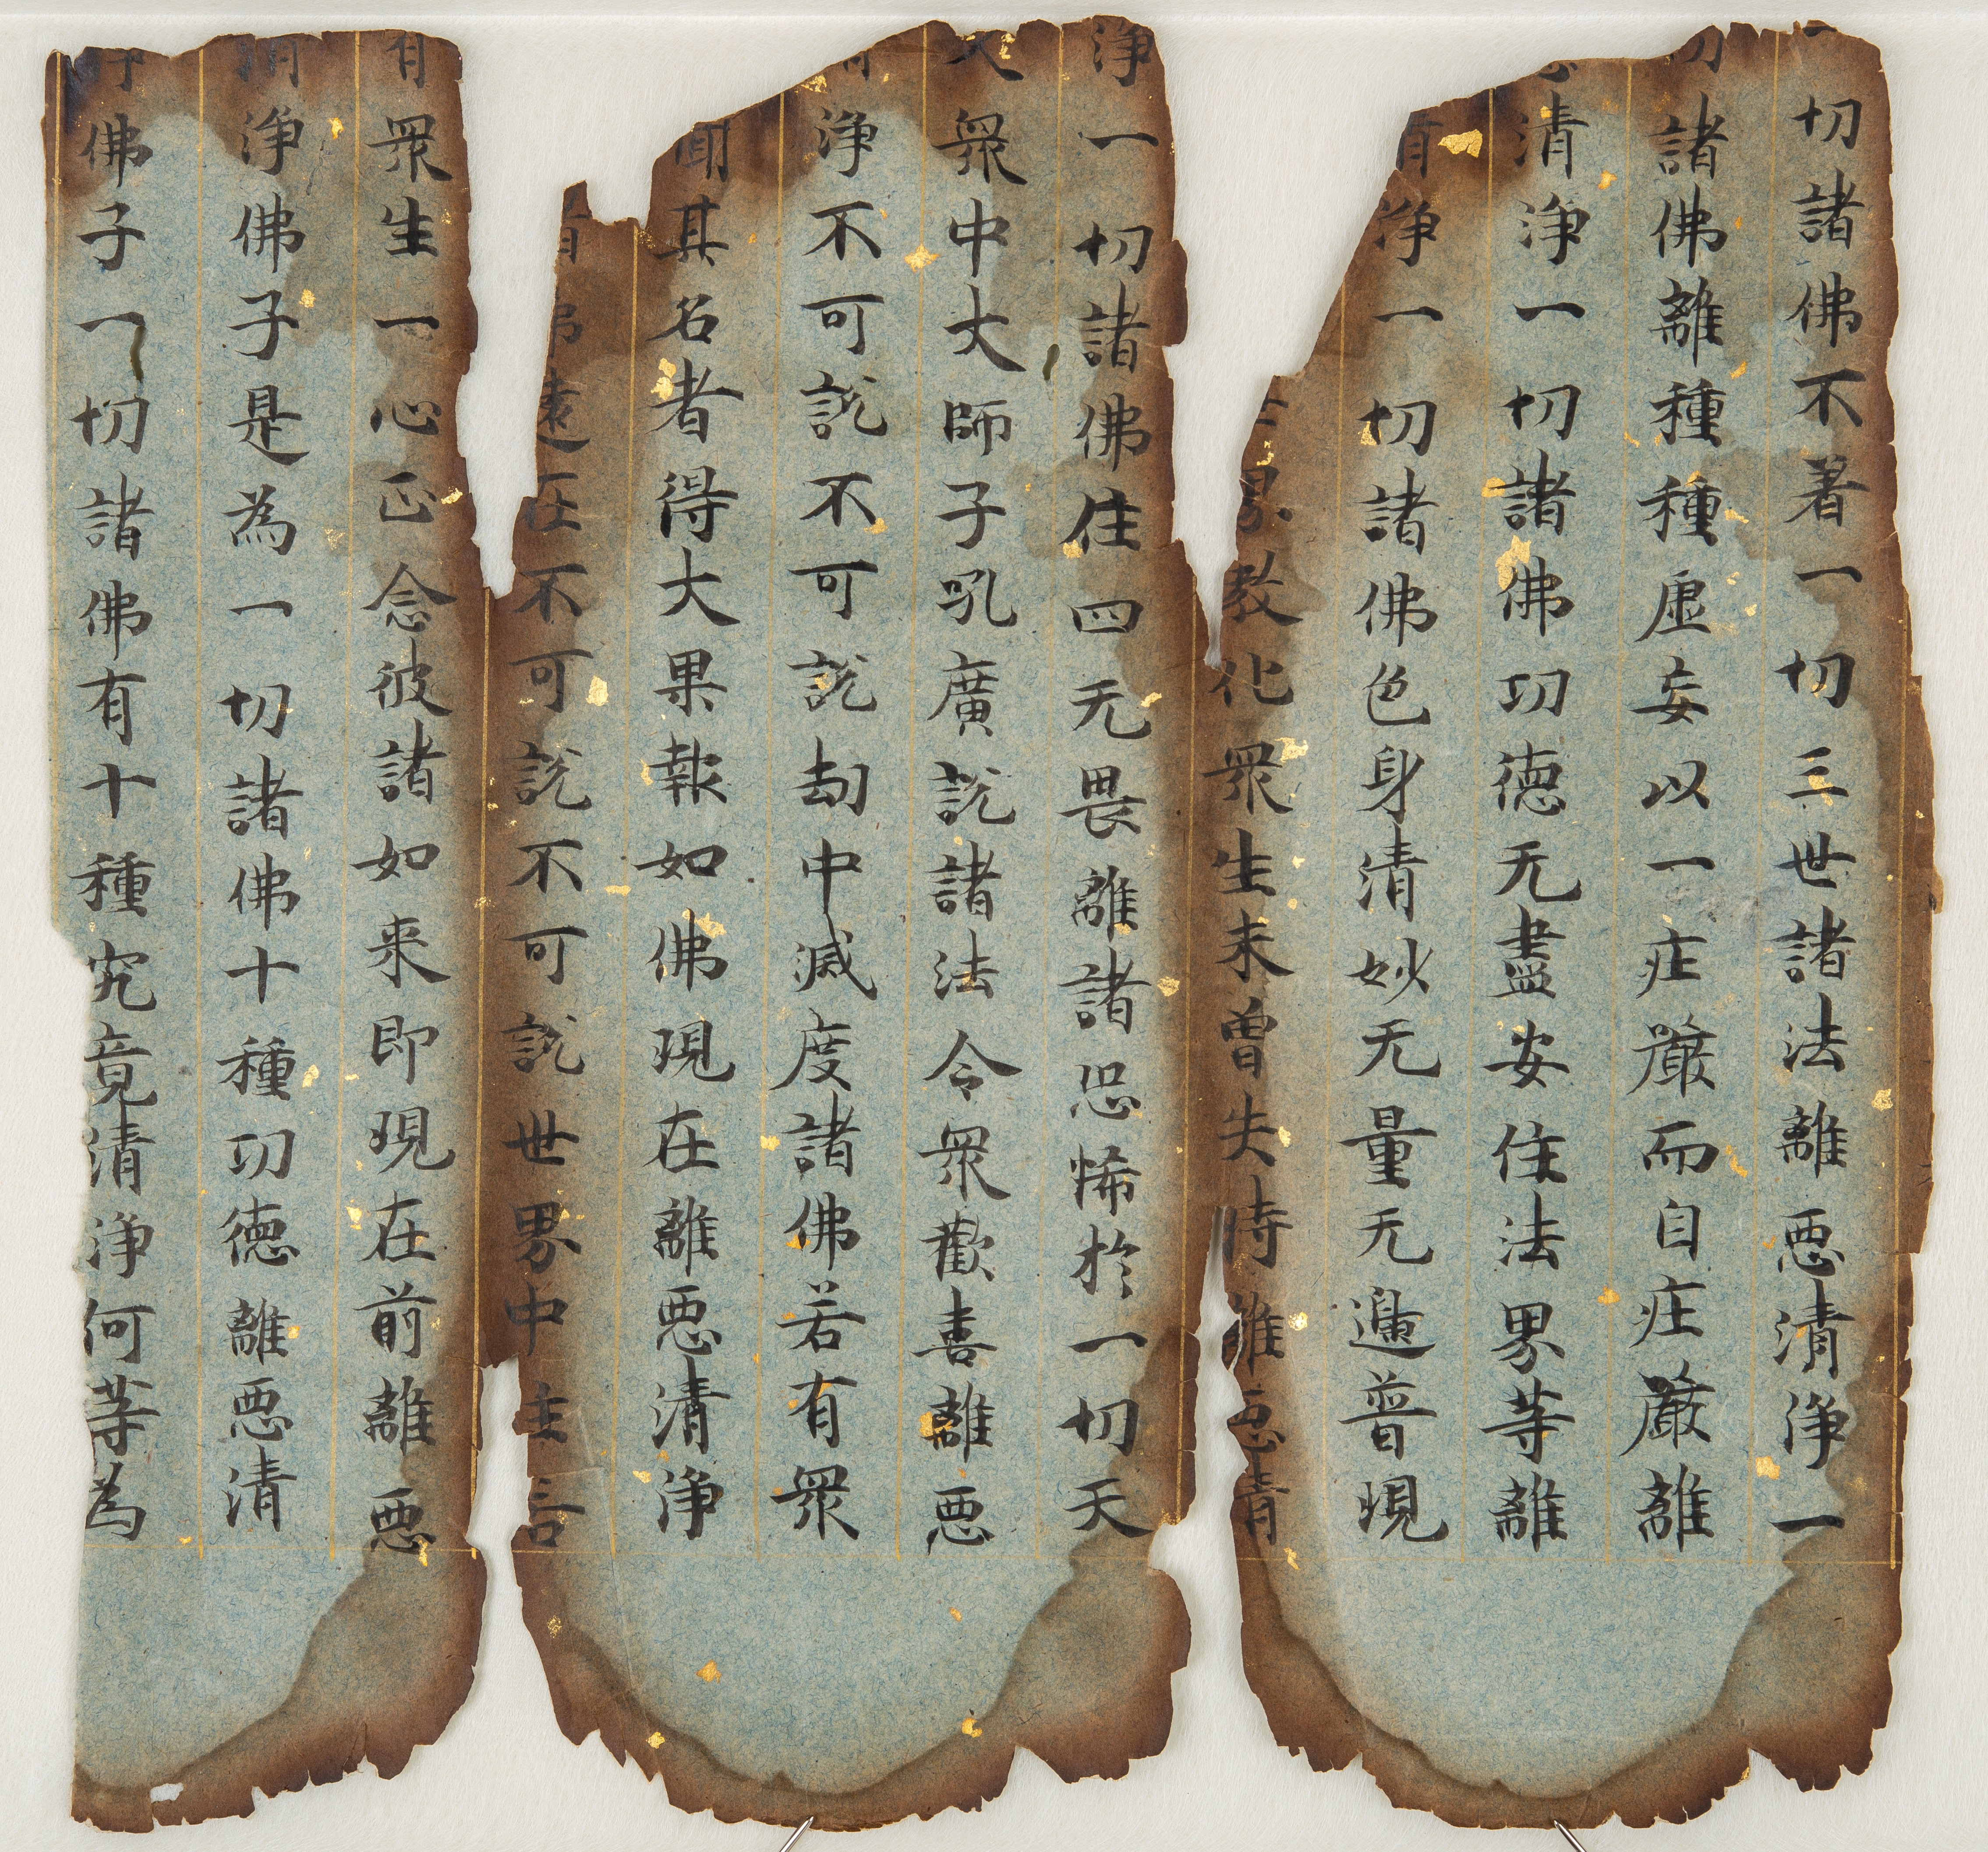 一切諸佛不著一切三世諸法離悪清浄一
切諸佛離種種虛妄以一庄嚴而自庄嚴離
悪清浄一切諸佛功徳无盡安住法界等離
清浄一切諸佛色身清妙无量无邊普現
世界教化衆生未曽失時離悪清
浄一切諸佛住四无畏離諸恐怖於一切天
大衆中大師子吼廣説諸法令衆歡喜離悪
清浄不可説不可説劫中滅度諸佛若有衆
聞其名者得大果報如佛現在離悪清浄
諸佛遠在不可説不可説世界中主言
有衆生一心正念彼諸如来即現在前離悪
清浄佛子是為一切諸佛十種功徳離悪清
浄佛子一切諸佛有十種究竟清浄何等為